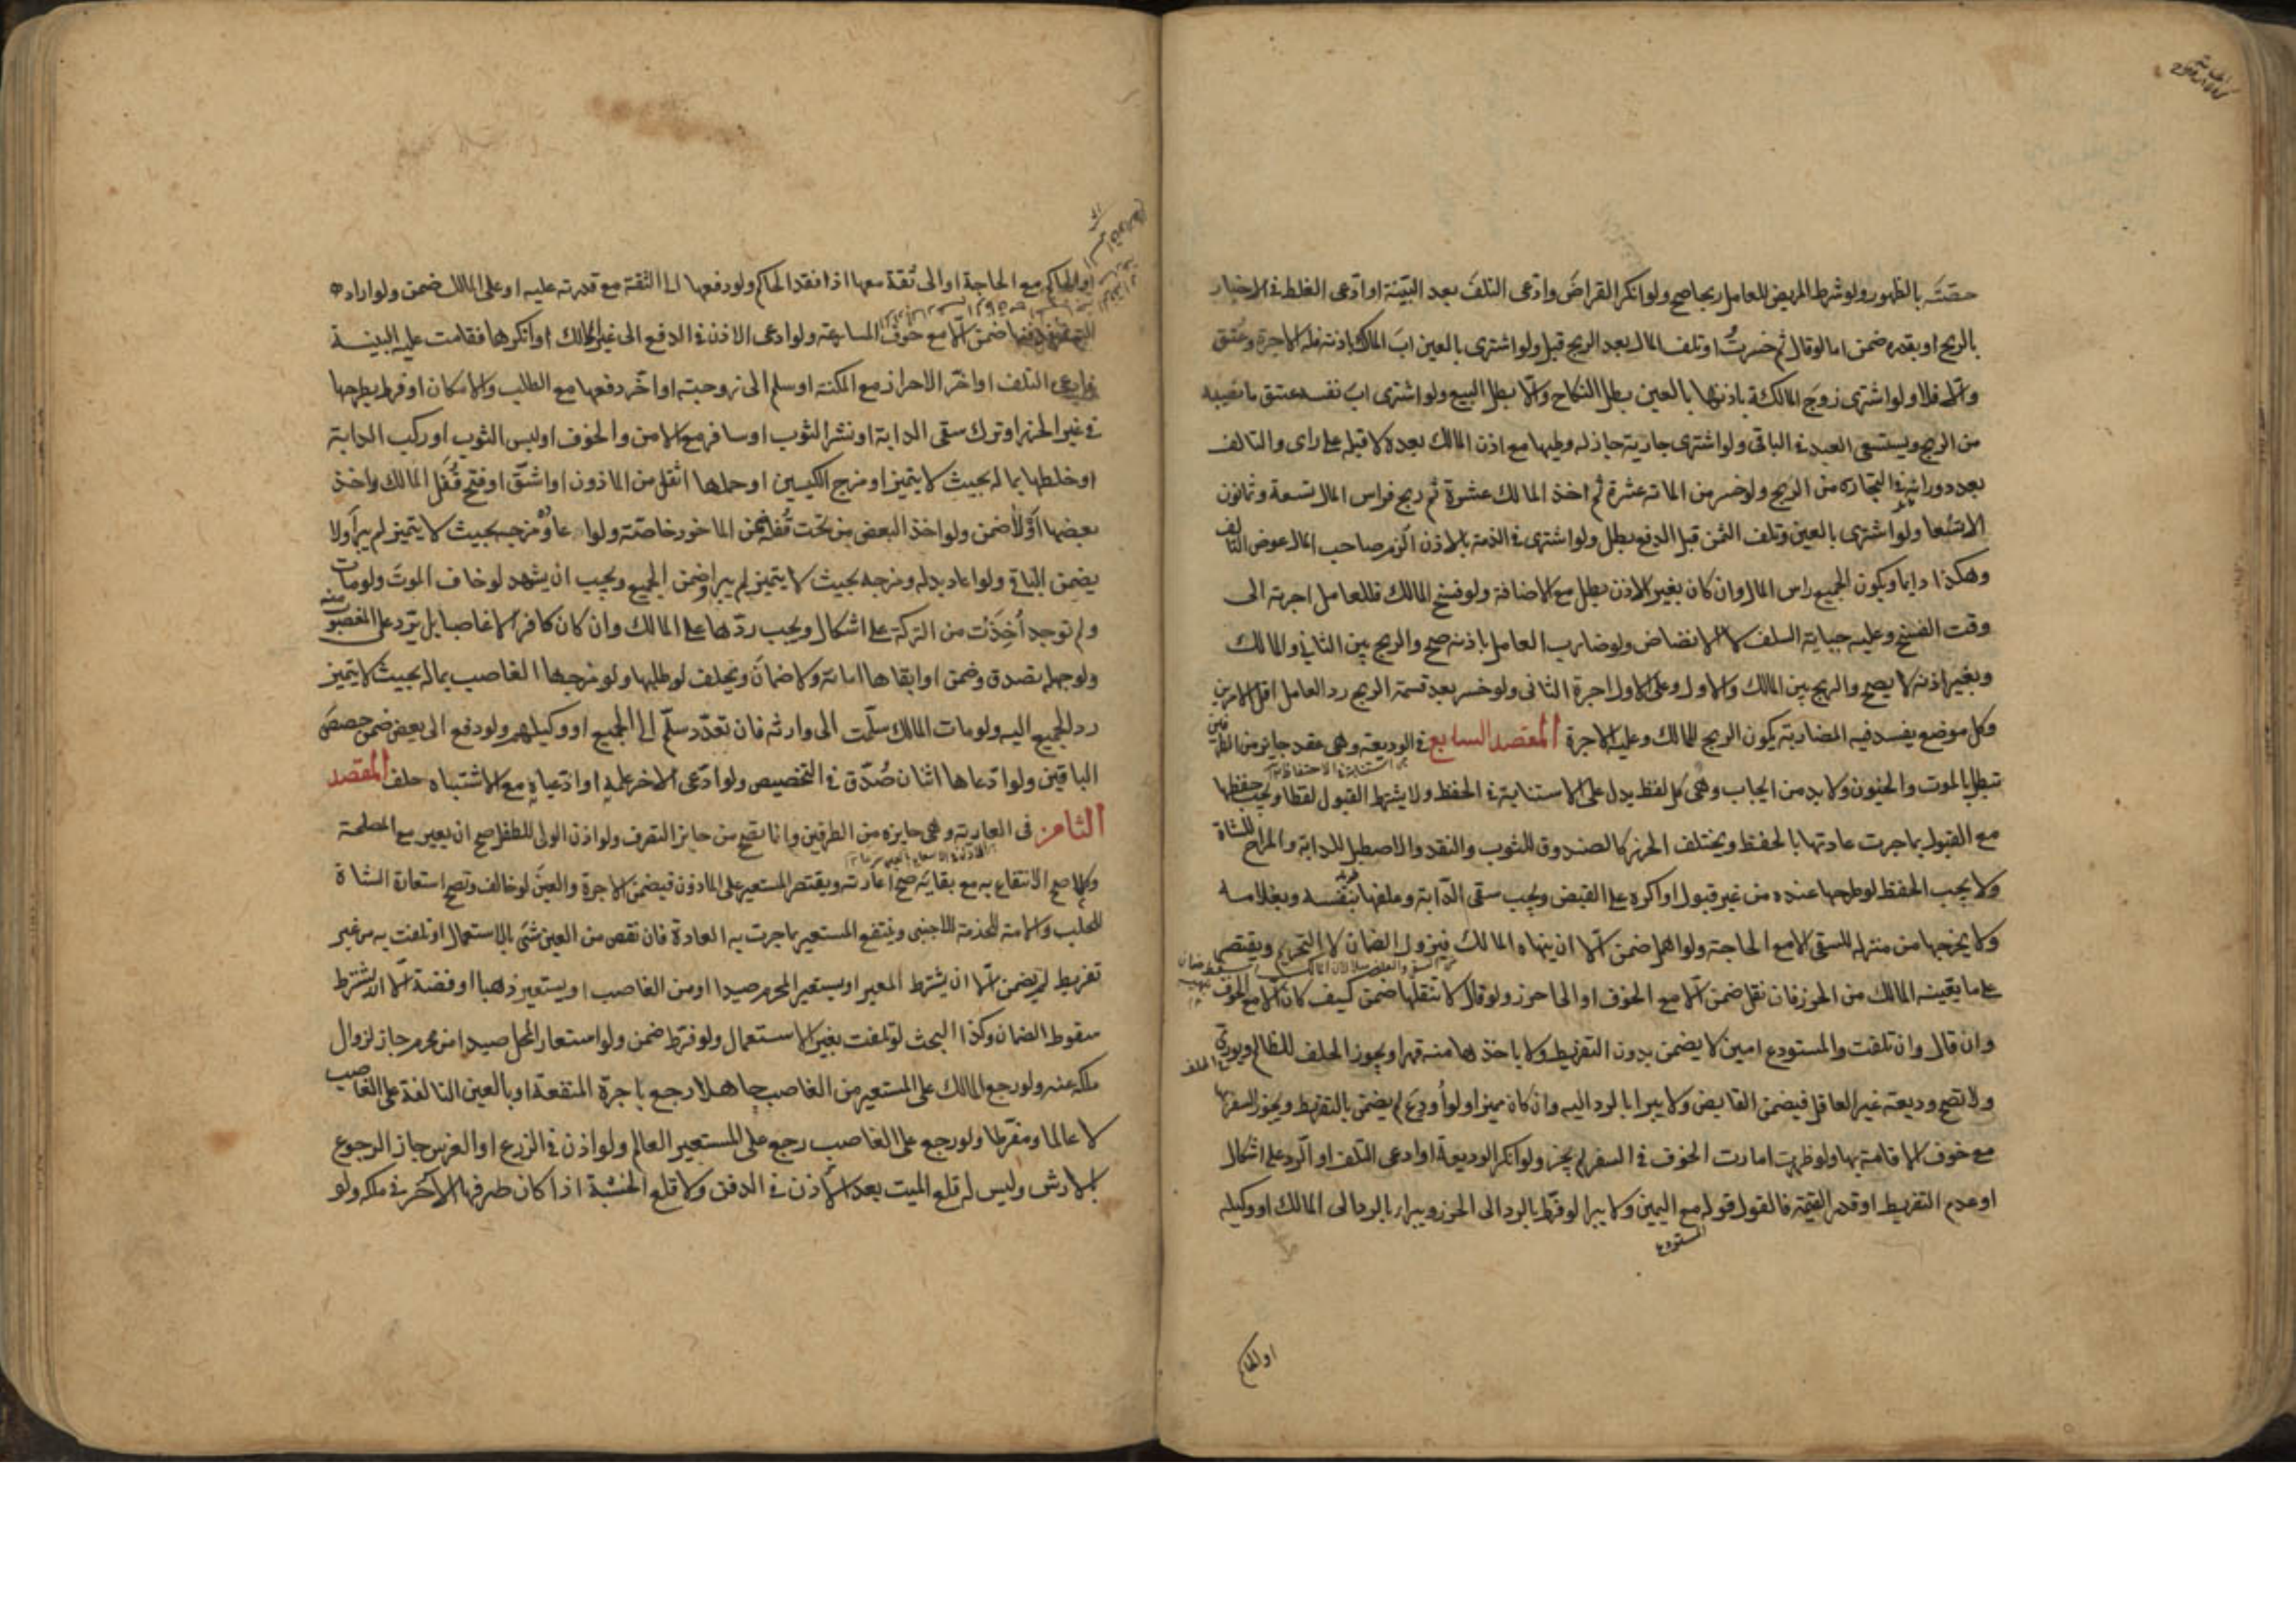 حصته بالظهور ولو شرط المريض للعامل ربحا صح ولو انكر القراض وادعى التلف بعد البينة او ادعى الغلط في الاخبار
بالربح او بقدره ضمن اما لو قال ثم خسرت او تلف المال بعد الربح قبل ولو اشترى بالعين اب المالك باذنه فله الاجرة وعتق
والا فلا ولو اشترى زوج المالكة باذنها بالعين بطل النكاح والا بطل البيع ولو اشترى اب نفسه عتق ما نصيبه
من الربح ويستسعى العبد في الباقى ولو اشترى جارية جاز له وطيها مع اذن المالك بعده لا قبله على راى والتالف
بعد دورانه في التجارة من الربح ولو خسر من المائة عشرة ثم اخذ المالك عشرة ثم ربح فراس المال تسعة وثمانون
الا تسعا ولو اشترى بالعين وتلف الثمن قبل الدفع بطل ولو اشترى في الذمة بالاذن الزم صاحب المال عوض التالف
وهكذا دايما ويكون الجميع راس المال وان كان بغير الاذن بطل مع الاضافة ولو فسخ المالك فللعامل اجرته الى
وقت الفسخ وعليه جباية السلف لا الانضاض ولو ضارب العامل باذنه صح والربح بين الثاني والمالك
وبغير اذنه لا يصح والربح بين المالك والاول وعلى الاول اجرة الثانى ولو خسر بعد قسمة الربح رد العامل اقل الامرين
وكل موضع يفسد فيه المضاربة يكون الربح للمالك وعليه الاجرة المقصد السابع في الوديعة وهى عقد جايز من الطرفين
تبطل بالموت والجنون ولا بد من ايجاب وهى كل لفظ يدل على الاستنابة في الحفظ ولا يشترط القبول لفظا ويجب حفظها
مع القبول بما جرت عادتها بالحفظ ويختلف الحرز كالصندوق للثوب والنقد والاصطبل للدابة والمراح للشاة
ولا يجب الحفظ لو طرحها عنده من غير قبول او اكره على القبض ويجب سقى الدابة وعلفها بنفسه وبغلامه
ولا يخرجها من منزله للسقى الا مع الحاجة ولو اهمل ضمن الا ان ينهاه المالك فيزول الضمان لا التحريم ويقتصر
على ما يعينه المالك من الحرز فان نقل ضمن الا مع الخوف او الى احرز ولو قال لا تنقلها ضمن كيف كان الا مع خوف التلف
وان قال وان تلفت والمستودع امين لا يضمن بدون التفريط ولا باخذها منه قهرا ويجوز الحلف للظالم ويورى
ولا تصح وديعة غير العاقل فيضمن القابض ولا يبرا بالرد اليه وان كان مميزا ولو اودع لم يضمن بالتفريط ويجوز السفر بها
مع خوف الاقامة بها ولو ظهرت امارت الخوف في السفر لم يجز ولو انكر الوديعة او ادعى التلف او الرد على اشكال
او عدم التفريط او قدر القيمة فالقول قوله مع اليمين ولا يبرا لو فرط بالرد الى الحرز ويبرا بالرد الى المالك او وكيله
المستودع
او الحاكم
او الحاكم مع الحاجة او الى ثقة معها اذا فقد الحاكم ولو دفعها الى الثقة مع قدرته عليه او على المالك ضمن ولو اراد
السفر فدفنها ضمن الا مع خوف المسارعة ولو ادعى الاذن في الدفع الى غير المالك او انكرها فقامت عليه البينة
فادعى التلف او اخر الاحراز مع المكنة او سلم الى زوجته او اخر دفعها مع الطلب والامكان او فرط بطرحها
في غير الحرز او ترك سقى الدابة او نشر الثوب او سافر مع الامن والخوف او لبس الثوب او ركب الدابة
او خلطها بماله بحيث لا يتميز او مزج الكيسين او حملها اثقل من الماذون او اشق او فتح قفل المالك واخذ
بعضها اولا ضمن ولو اخذ البعض من تحت قفله ضمن الماخوذ خاصة ولو اعاده ومزجه بحيث لا يتميز لم يبرأ ولا
يضمن الباقي ولو اعاد بدله ومزجه بحيث لا يتميز لم يبرا وضمن الجميع ويجب ان يشهد لو خاف الموت ولو مات
ولم توجد اخذت من التركة على اشكال ويجب ردها على المالك وان كان كافرا لا غاصبا بل ترد على المغصوب منه
ولو جهله تصدق وضمن او ابقاها امانة ولا ضمان ويحلف لو طلبها ولو مزجها الغاصب بماله بحيث لا يتميز
رد الجميع اليه ولو مات المالك سلمت الى وارثه فان تعدد سلم الى الجميع او وكيلهم ولو دفع الى بعض ضمن حصص
الباقين ولو ادعاها اثنان صدق في التخصيص ولو ادعى الاخر علمه او ادعياه مع الاشتباه حلف المقصد
الثامن فى العارية وهى جايزه من الطرفين وانما تصح من جايز التصرف ولو اذن الولى للطفل صح ان يعير مع المصلحة
وكلما صح الانتفاع به مع بقايه صح اعارته ويقتصر المستعير على الماذون فيضمن الاجرة والعين لو خالف وتصح استعارة الشاة
للحلب والامة للخدمة للاجنبى وينتفع المستعير بما جرت به العادة فان نقص من العين شى بالاستعمال او تلفت به من غير
تفريط لم يضمن الا ان يشترط المعير او يستعير المحرم صيدا او من الغاصب او يستعير ذهبا او فضة الا ان يشترط
سقوط الضمان وكذا البحث لو تلفت بغير الاستعمال ولو فرط ضمن ولو استعار المحل صيدا من محرم جاز لزوال
ملكه عنه ولو رجع المالك على المستعير من الغاصب جاهلا رجع باجرة المنفعة او بالعين التالفة على الغاصب
لا عالما ومفرطا ولو رجع على الغاصب رجع على المستعير العالم ولو اذن في الزرع او الغرس جاز الرجوع
بالارش وليس له قلع الميت بعد الاذن في الدفن ولا قلع الخشبة اذا كان طرفها الاخر في ملكه ولو